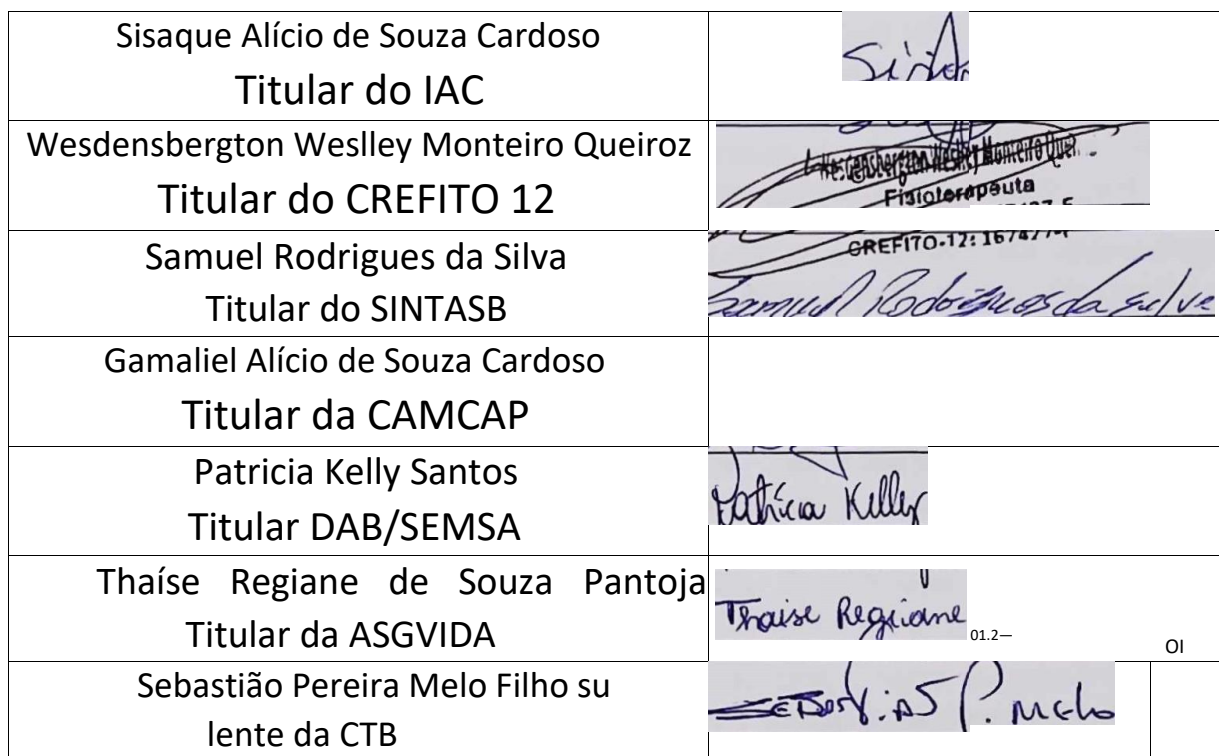 Sisaque Alício de Souza Cardoso
Titular do IAC
Wesdensbergton Weslley Monteiro Queiroz
Titular do CREFITO 12
Fisioterapeuta
CREFITO-12:
Samuel Rodrigues da Silva
Titular do SINTASB
Samuel Rodrigues da Silva
Gamaliel Alício de Souza Cardoso
Titular da CAMCAP
Patricia Kelly Santos
Titular DAB/SEMSA
Patrícia Kelly
Thaíse Regiane de Souza Pantoja
Titular da ASGVIDA
Thaise Regiane
01.2—
OI
Sebastião Pereira Melo Filho su
lente da CTB
P. Melo